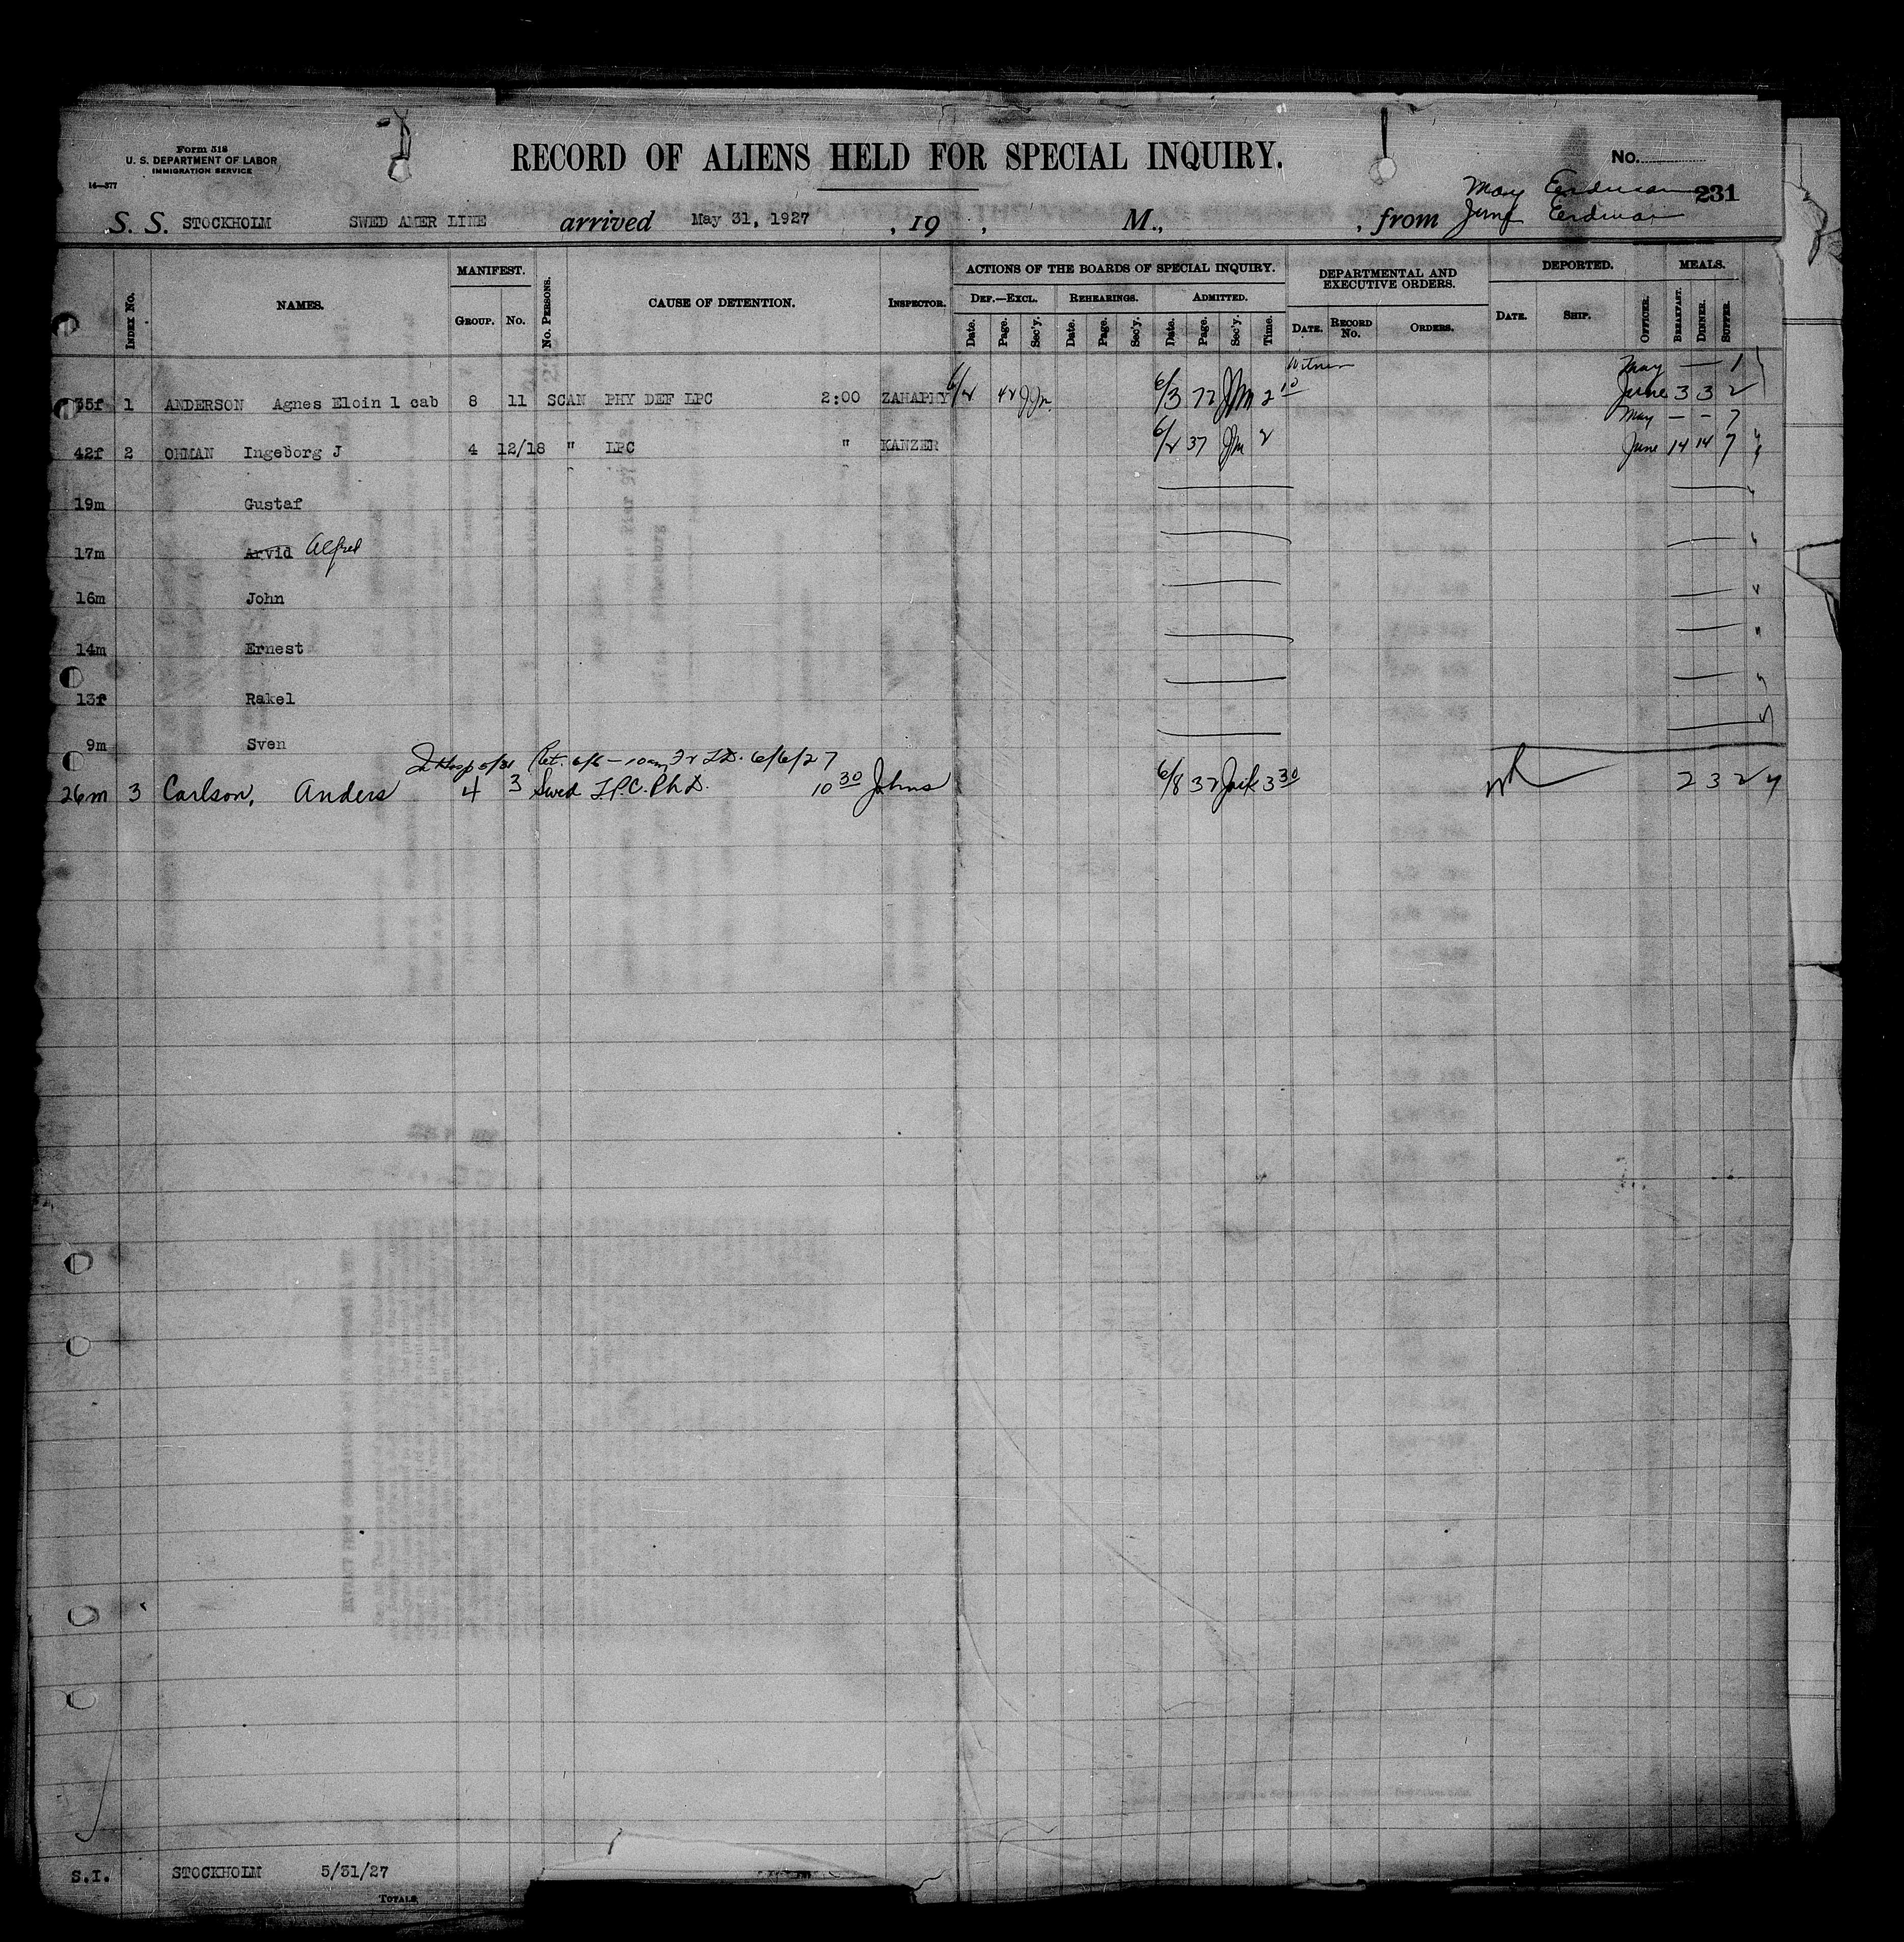 Form 518
U. S. DEPARTMENT OF LABOR
IMMIGRATION SERVICE
14—377
RECORD OF ALIENS HELD FOR SPECIAL INQUIRY.
No.
231
May Erdman
June Erdman
S. S. STOCKHOLM SWED AMER LINE arrived May 31, 1927, 19 , M., , from
Index No. NAMES. MANIFEST. Group. No. No. Persons. CAUSE OF DETENTION. Inspector.
ACTIONS OF THE BOARDS OF SPECIAL INQUIRY. Def.—Excl. Date. Page. Sec'y. Rehearings. Date. Page. Sec'y. Admitted. Date. Page. Sec'y. Time.
DEPARTMENTAL AND EXECUTIVE ORDERS. Date. Record No. Orders.
DEPORTED. Date. Ship. Officer.
MEALS. Breakfast. Dinner. Supper.
Witness May — 1
35f 1 ANDERSON Agnes Eloin 1 cab 8 11 SCAN PHY DEF LPC 2:00 ZAHAPHY 6/2 42 JJm 6/3 72 JJM 2 10 June 3 3 2
May — — 7
42f 2 OHMAN Ingeborg J 4 12/18 " LPC " KANZER 6/2 37 JJm 2 June 14 14 7
19m Gustaf
17m Arvid Alfred
16m John
14m Ernest
13f Rakel
9m Sven
In Hosp 5/31 Ret. 6/6 — 10am 6/6/27
26m 3 Carlson, Anders 4 3 Swed L.P.C. Ph D. 10 30 Johns 6/8 37 Jack 3 30 2 3 2
S.I. STOCKHOLM 5/31/27
Totals